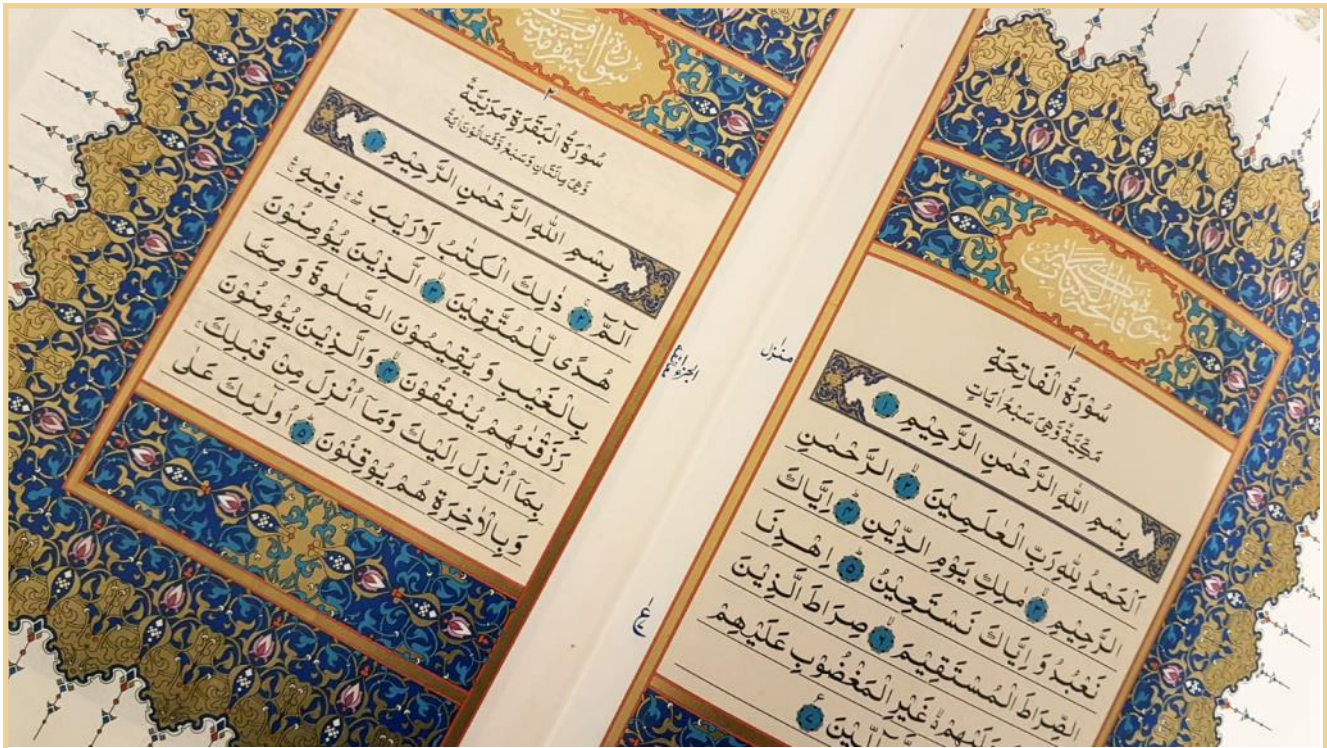 ١
سُوْرَةُ الْفَاتِحَةِ
مَكِّيَّةٌ وَّهِيَ سَبْعُ اٰيَاتٍ
بِسْمِ اللّٰهِ الرَّحْمٰنِ الرَّحِيْمِ ١
اَلْحَمْدُ لِلّٰهِ رَبِّ الْعٰلَمِيْنَ ۲ الرَّحْمٰنِ
الرَّحِيْمِ ۳ مٰلِكِ يَوْمِ الدِّيْنِ ۴ اِيَّاكَ
نَعْبُدُ وَ اِيَّاكَ نَسْتَعِيْنُ ۵ اِهْدِنَا
الصِّرَاطَ الْمُسْتَقِيْمَ ۶ صِرَاطَ الَّذِيْنَ
عَلَيْهِمْ غَيْرِ الْمَغْضُوْبِ عَلَيْهِمْ
۷
منزل
ع
٢
سُوْرَةُ الْبَقَرَةِ مَدَنِيَّةٌ
وَّهِيَ مِائَتَانِ وَسَبْعٌ وَّثَمَانُوْنَ اٰيَةً
بِسْمِ اللّٰهِ الرَّحْمٰنِ الرَّحِيْمِ ١
الٓمّٓ ۲ ذٰلِكَ الْكِتٰبُ لَا رَيْبَ فِيْهِ
هُدًى لِّلْمُتَّقِيْنَ ۳ الَّذِيْنَ يُؤْمِنُوْنَ
بِالْغَيْبِ وَ يُقِيْمُوْنَ الصَّلٰوةَ وَ مِمَّا
رَزَقْنٰهُمْ يُنْفِقُوْنَ ۴ وَالَّذِيْنَ يُؤْمِنُوْنَ
بِمَآ اُنْزِلَ اِلَيْكَ وَمَآ اُنْزِلَ مِنْ قَبْلِكَ
وَبِالْاٰخِرَةِ هُمْ يُوْقِنُوْنَ ۵ اُولٰٓئِكَ عَلٰى